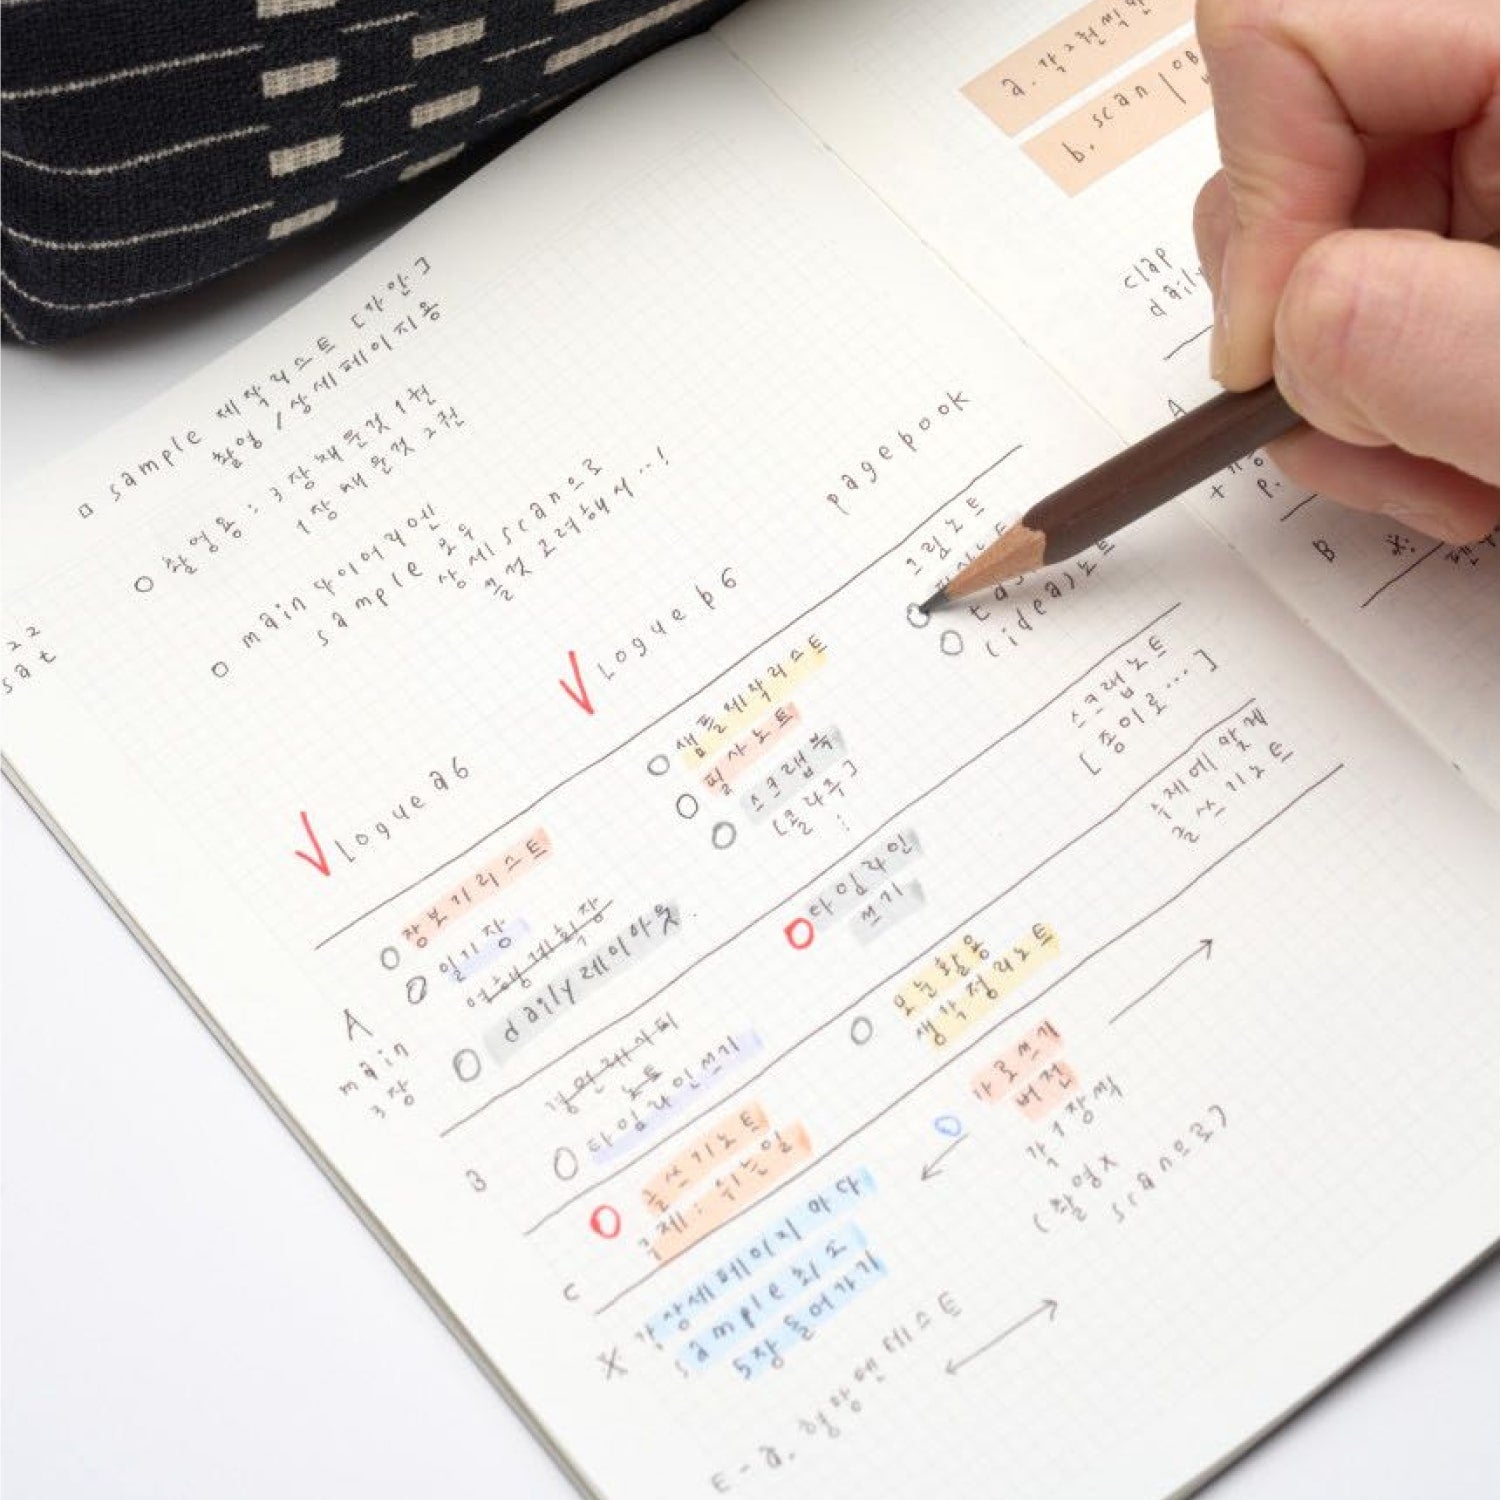 22
sat
sample 제작리스트 [가안]
촬영 / 상세페이지용
촬영용 : 3장 채운것 1권
1장 채운것 2권
main 다이어리엔
sample 모두
상세 scan으로
쓸것 고려해서…!
Logue a6
Logue b6
pagebook
A
main
3장
장보기리스트
일기장
여행계획장
daily 레이아웃
샘플제작리스트
필사노트
스크랩북
[콜라주]
크림노트
(idea)노트
B
노트
타임라인쓰기
타임라인
쓰기
스크랩노트
[종이로…]
C
글쓰기노트
주제 : 쉬는일
모눈활용
생각정리노트
주제에 맞게
글쓰기노트
X 각 상세페이지마다
sample 최소
5장 들어가기
가로쓰기
버전
각 1장씩
(촬영X
scan으로)
E - a. 형광펜테스트
a. 각 2권씩
b. scan
clap
daily
A
p.
B